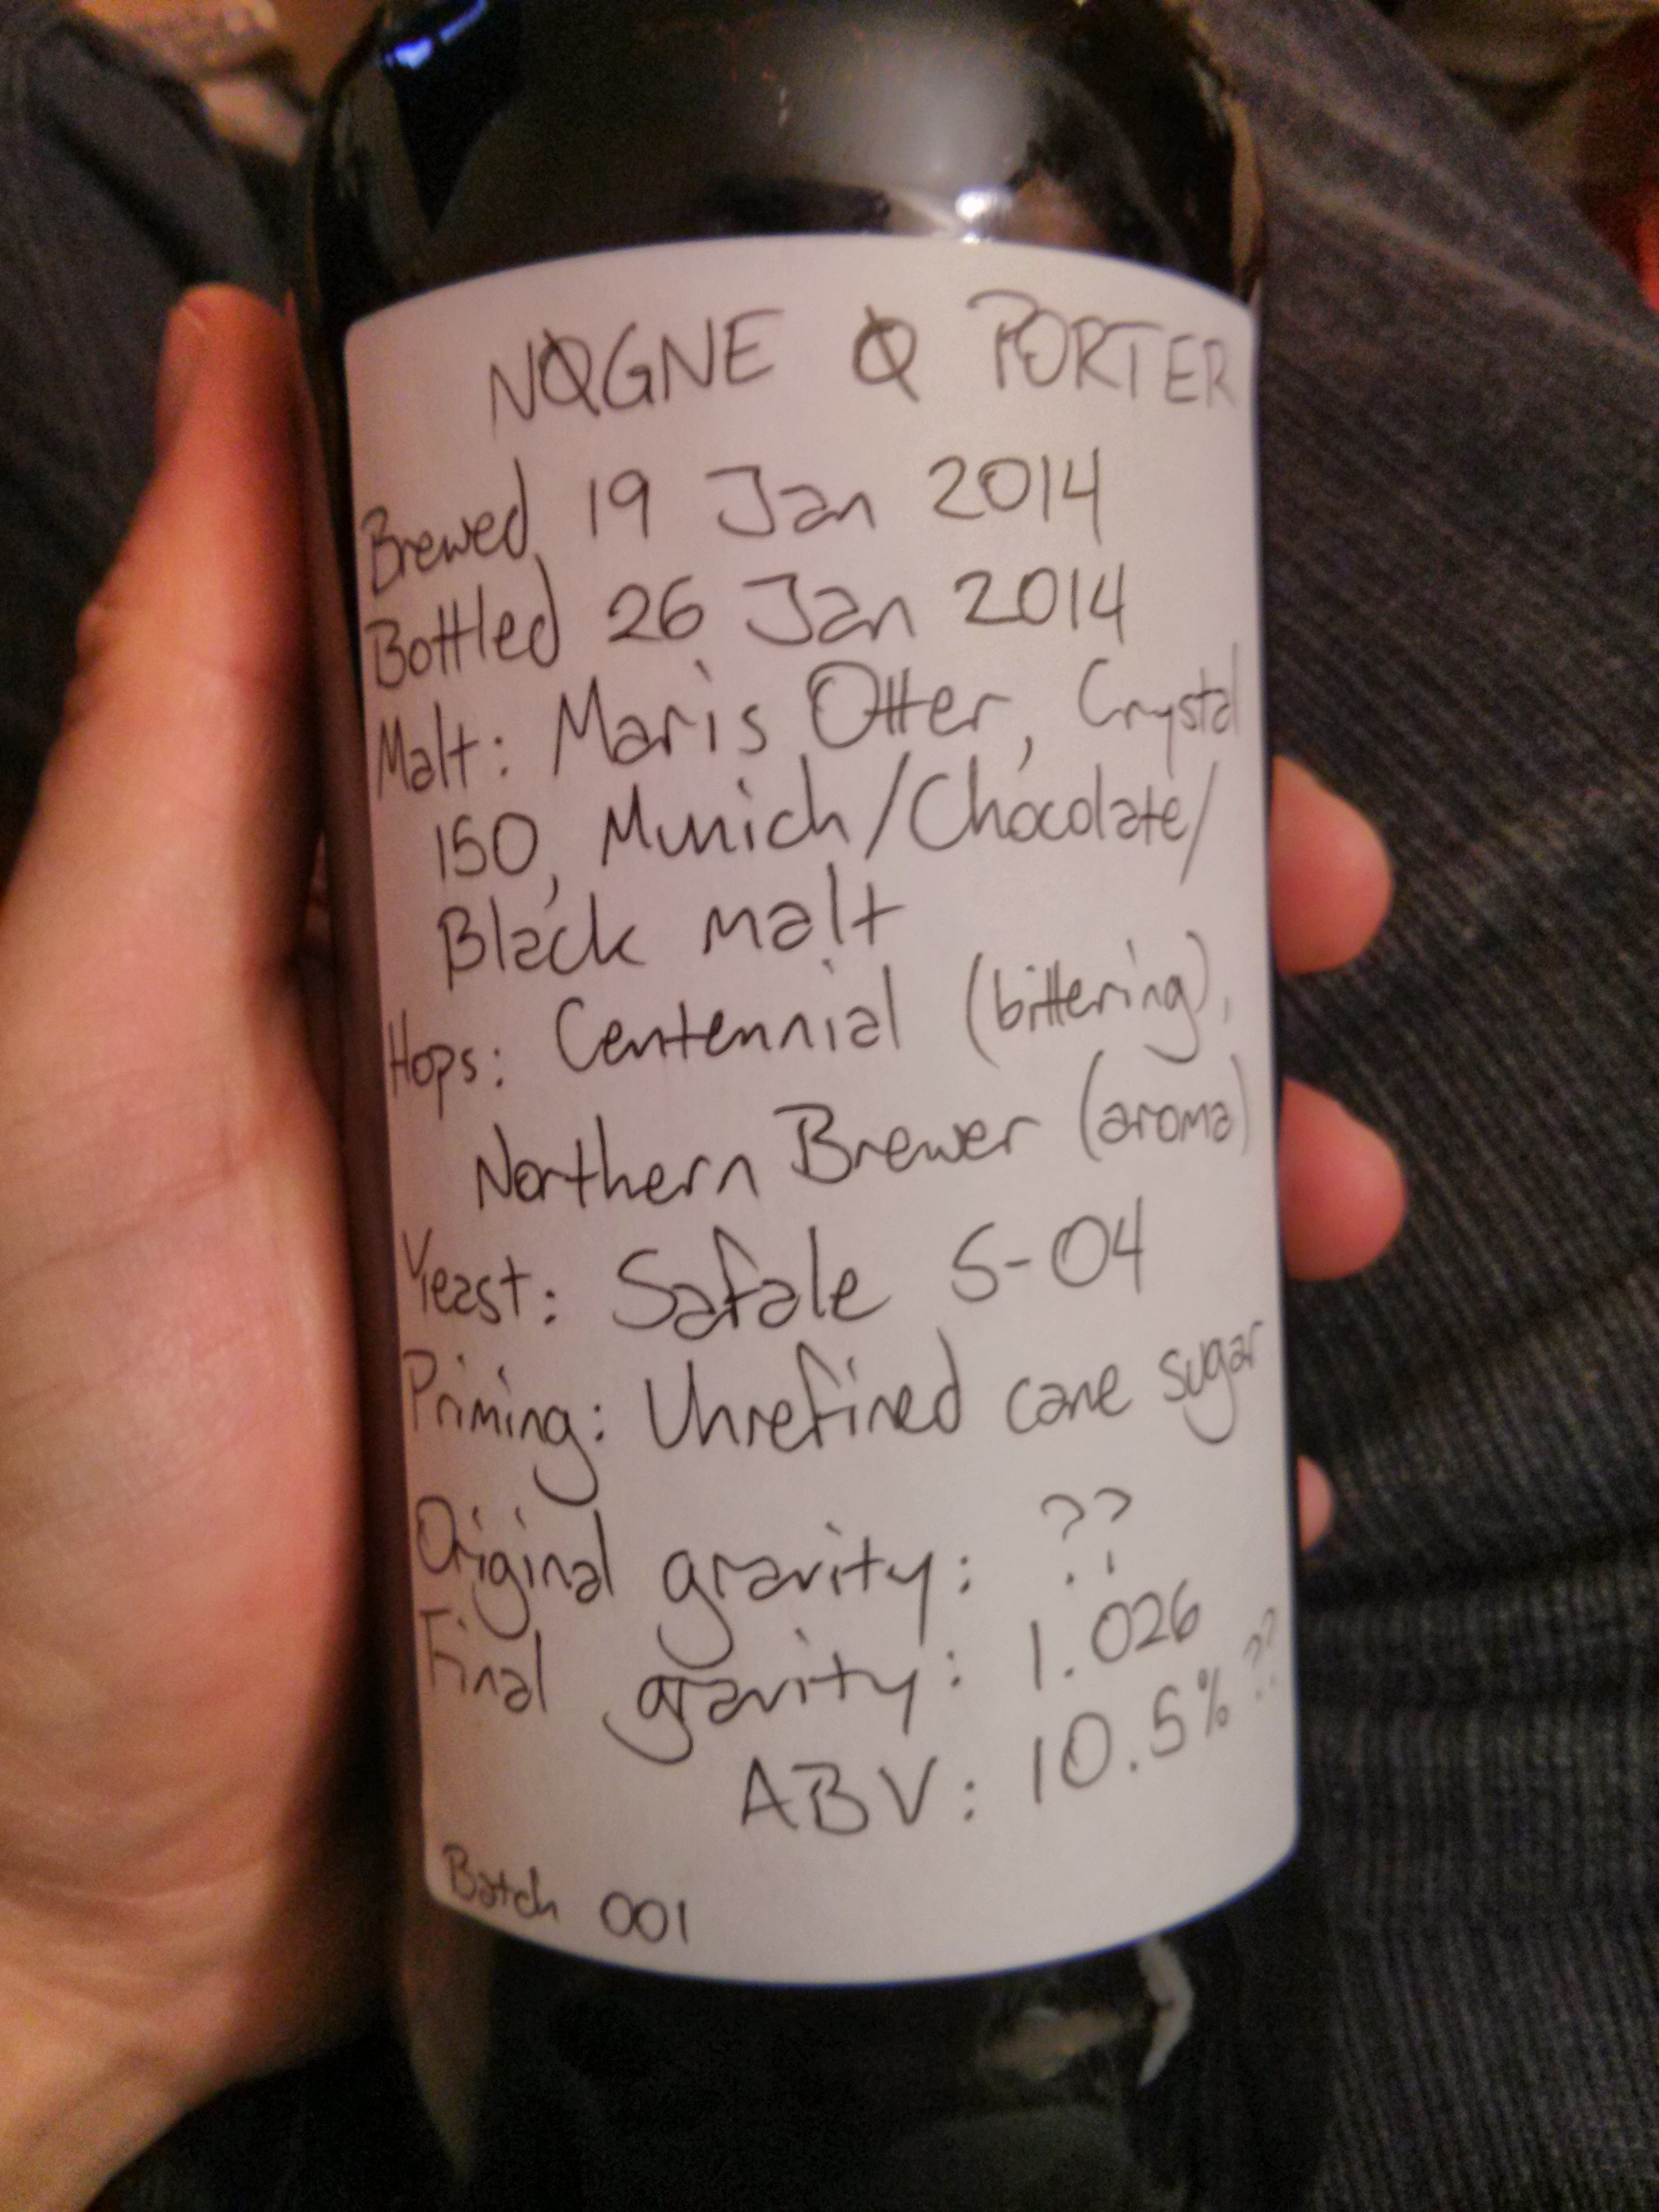 NØGNE Ø PORTER
Brewed 19 Jan 2014
Bottled 26 Jan 2014
Malt: Maris Otter, Crystal
150, Munich/Chocolate/
Black malt
Hops: Centennial (bittering),
Northern Brewer (aroma)
Yeast: Safale S-04
Priming: Unrefined cane sugar
Original gravity: ??
Final gravity: 1.026
ABV: 10.5% ??
Batch 001